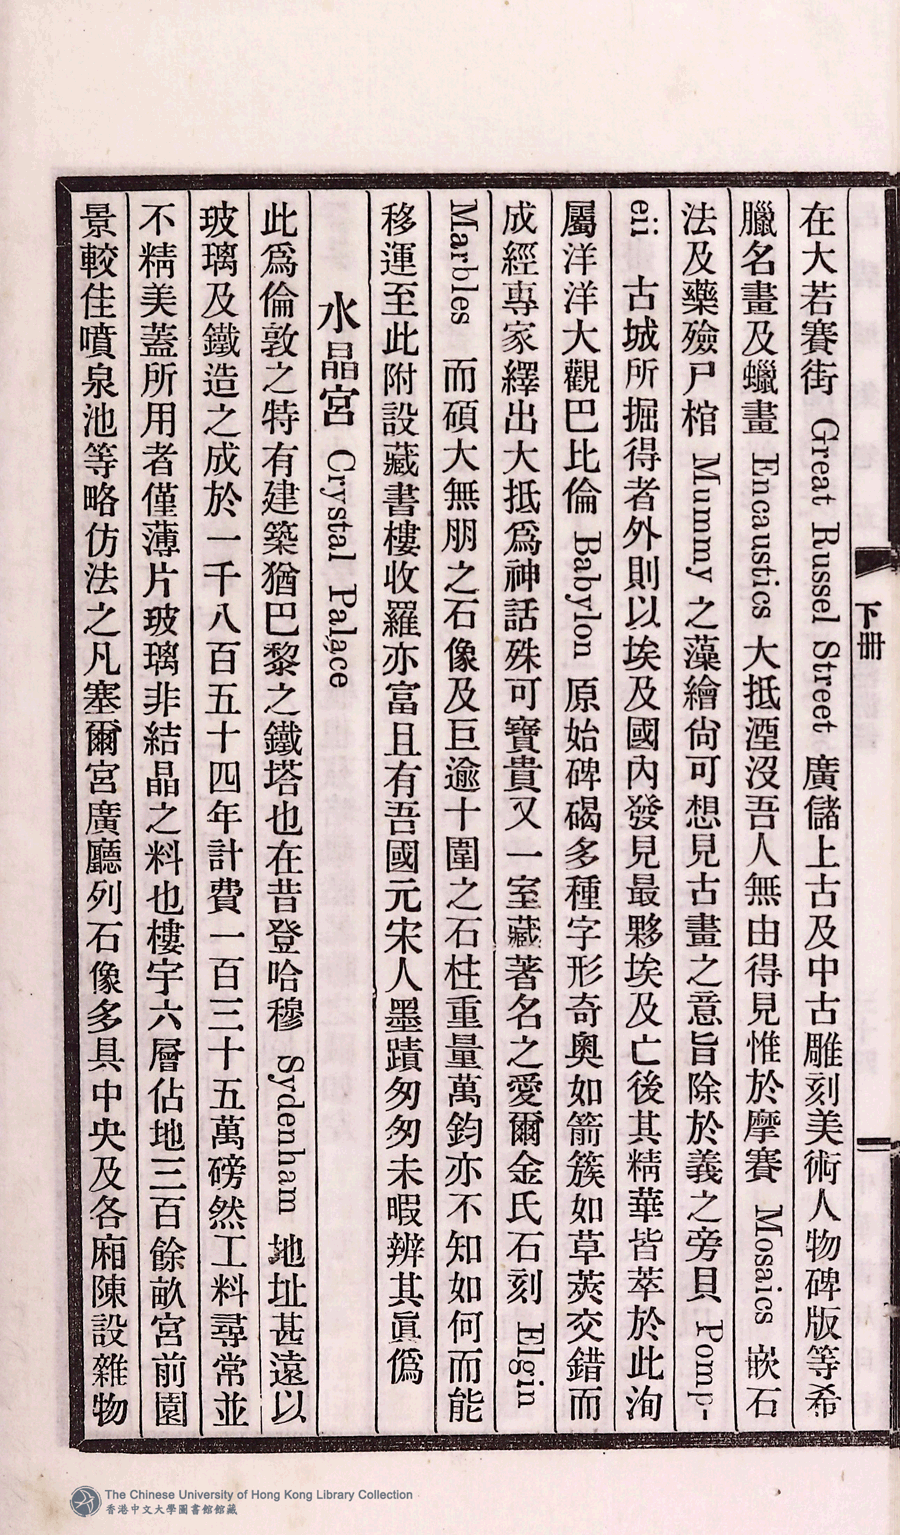 下冊
二
在大若賽街 Great Russel Street 廣儲上古及中古雕刻美術人物碑版等希
臘名畫及蠟畫 Encaustics 大抵湮沒吾人無由得見惟於摩賽 Mosaics 嵌石
法及藥殮尸棺 Mummy 之藻繪尙可想見古畫之意旨除於義之旁貝 Pomp-
eii 古城所掘得者外則以埃及國內發見最夥埃及亡後其精華皆萃於此洵
屬洋洋大觀巴比倫 Babylon 原始碑碣多種字形奇奧如箭簇如草莢交錯而
成經專家繹出大抵爲神話殊可寶貴又一室藏著名之愛爾金氏石刻 Elgin
Marbles 而碩大無朋之石像及巨逾十圍之石柱重量萬鈞亦不知如何而能
移運至此附設藏書樓收羅亦富且有吾國元宋人墨蹟匆匆未暇辨其眞僞
水晶宮 Crystal Palace
此爲倫敦之特有建築猶巴黎之鐵塔也在昔登哈穆 Sydenham 地址甚遠以
玻璃及鐵造之成於一千八百五十四年計費一百三十五萬磅然工料尋常並
不精美蓋所用者僅薄片玻璃非結晶之料也樓宇六層佔地三百餘畝宮前園
景較佳噴泉池等略仿法之凡塞爾宮廣廳列石像多具中央及各廂陳設雜物
The Chinese University of Hong Kong Library Collection
香港中文大學圖書館館藏